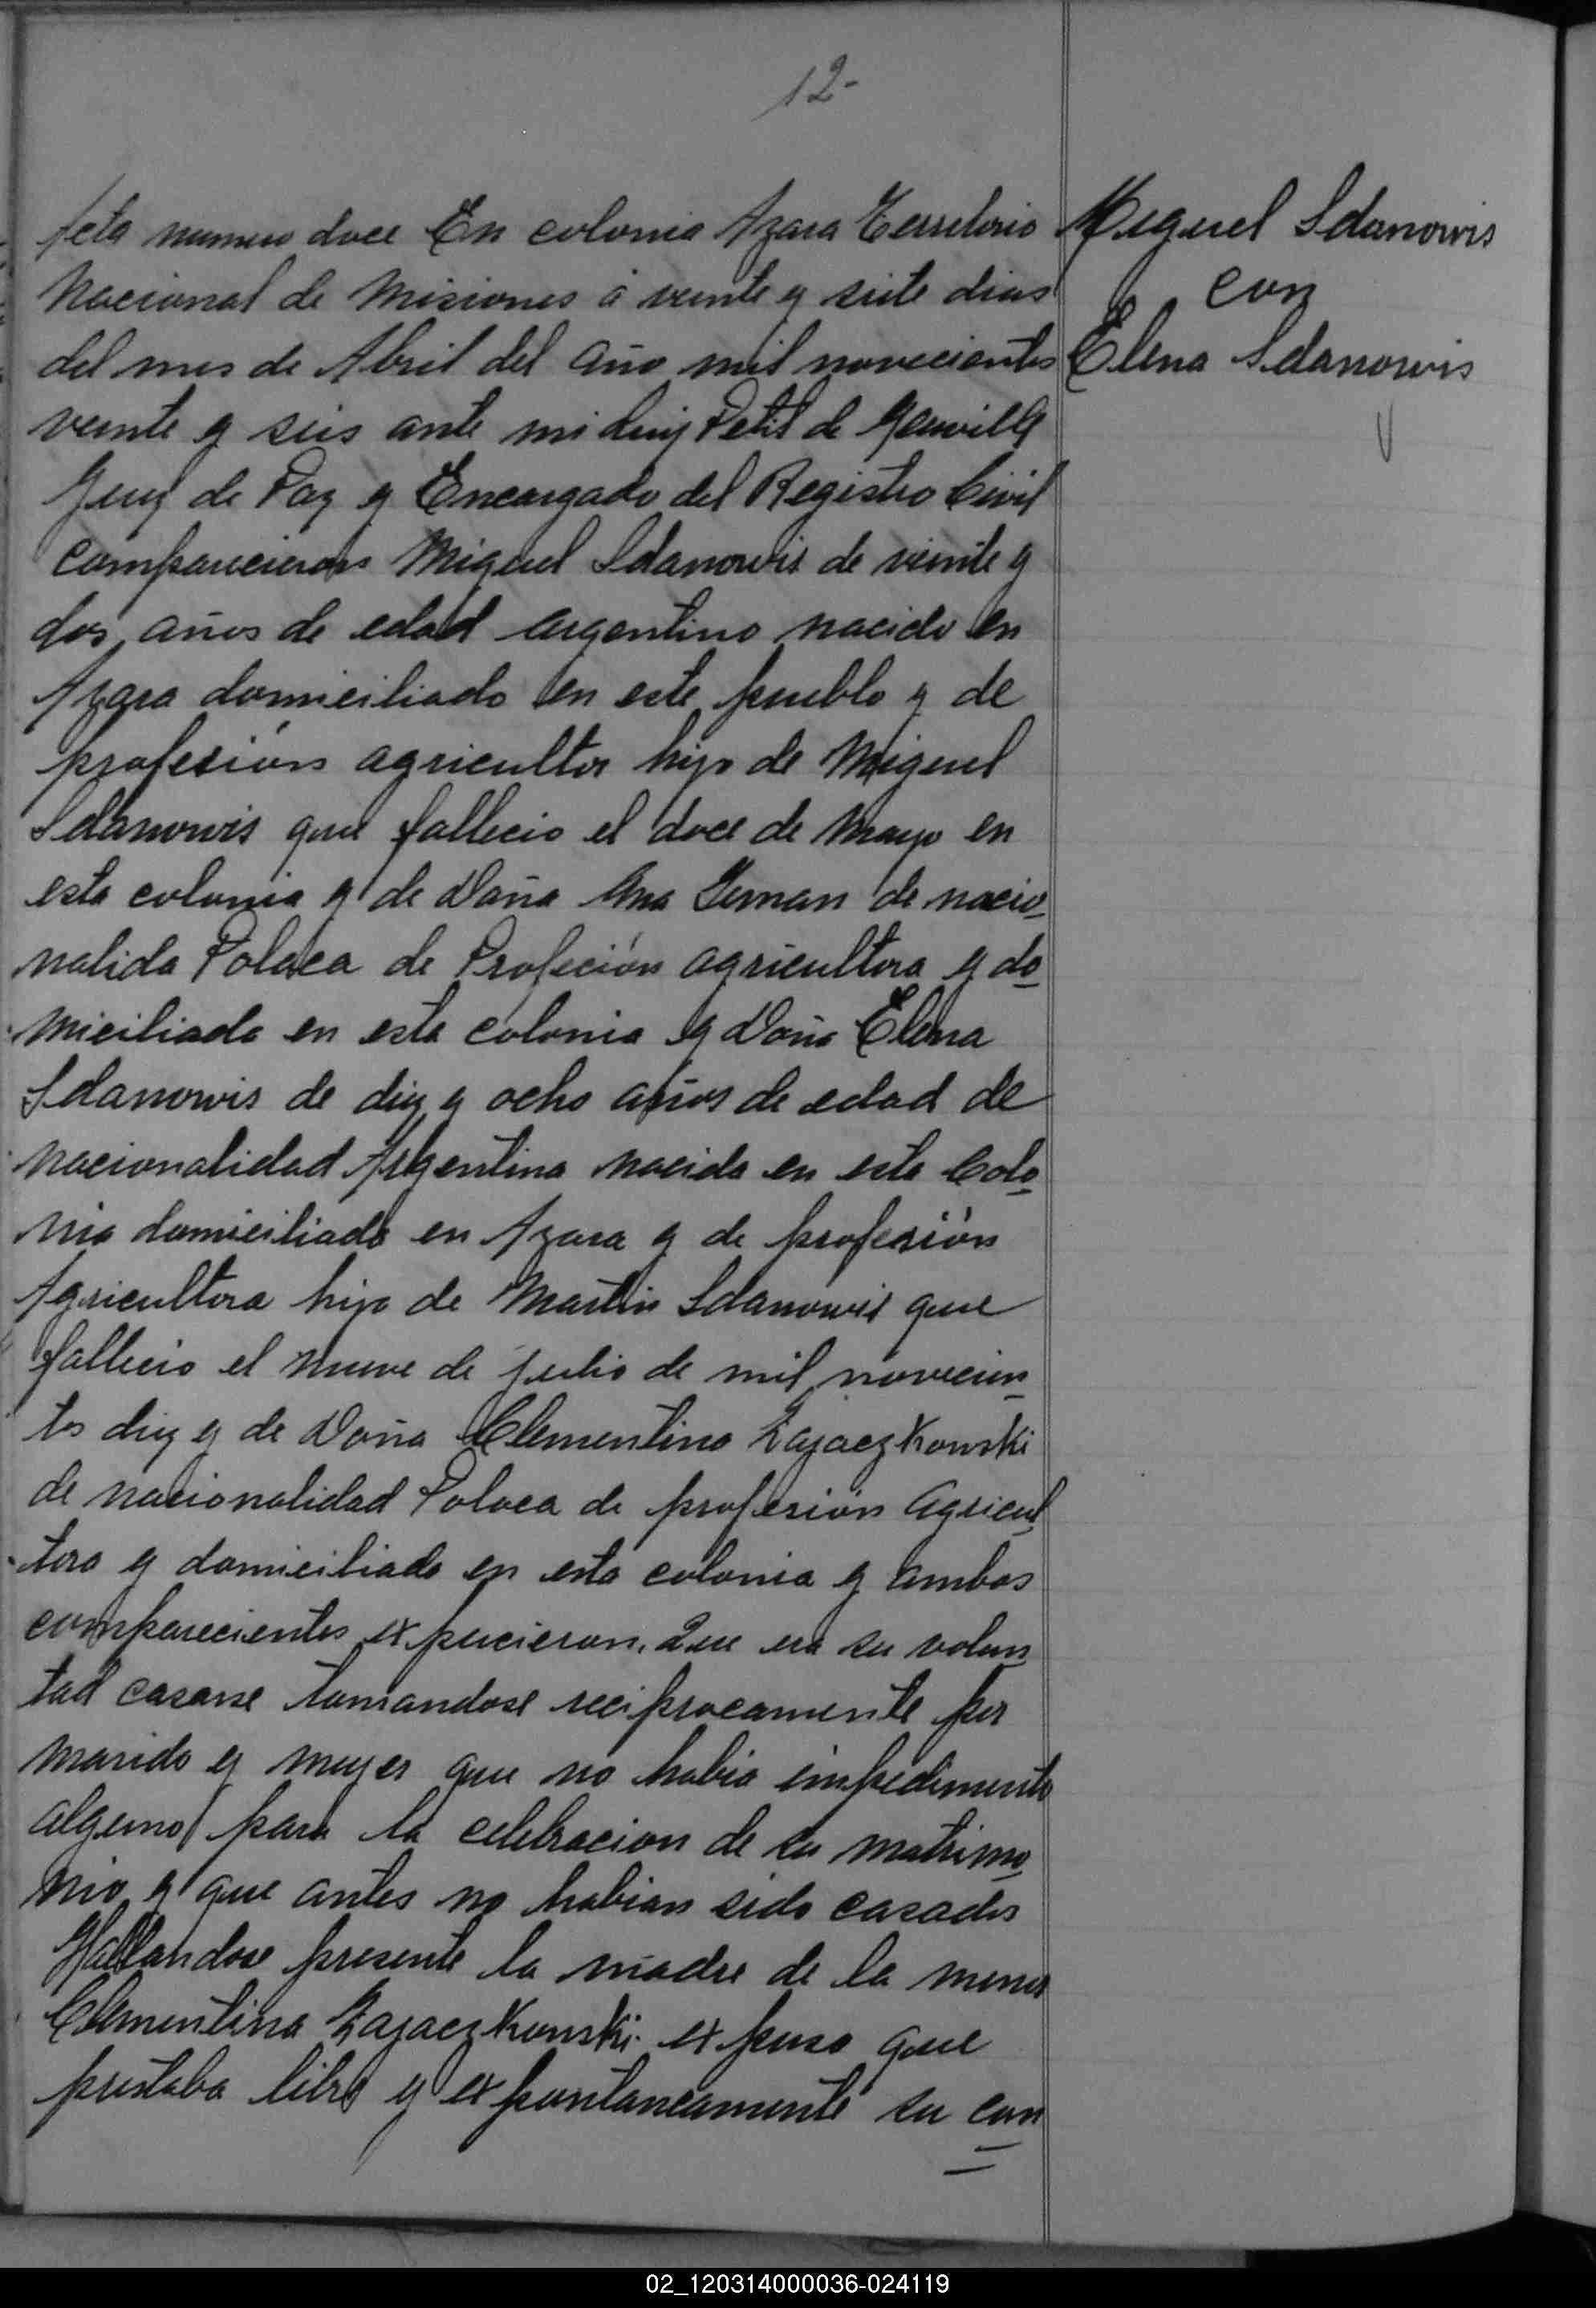 12-
Acta numero doce En colonia Azara Territorio
Nacional de Misiones á veinte y siete dias
del mes de Abril del año mil novecientos
veinte y seis ante mi Luis Petit de
Juez de Paz y Encargado del Registro Civil
comparecieron Miguel Sdanowis de veinte y
dos años de edad argentino nacido en
Azara domiciliado en este pueblo y de
profesión agricultor hijo de Miguel
Sdanowis que fallecio el doce de Mayo en
esta colonia y de Doña Ana de nacio-
nalida Polaca de Profeción agricultora y do-
miciliada en esta colonia y Doña Elena
Sdanowis de diez y ocho años de edad de
nacionalidad Argentina nacida en esta Colo-
nia domiciliada en Azara y de profesión
Agricultora hija de Martin Sdanowis que
fallecio el nueve de julio de mil novecien-
tos diez y de Doña Clementina Zajaczkowski
de nacionalidad Polaca de profesión Agricul-
tora y domiciliada en esta colonia y ambos
comparecientes expucieron. Que era su volun-
tad casarse tomandose reciprocamente por
marido y mujer que no habia impedimento
alguno para la celebracion de su matrimo-
nio y que antes no habian sido casados
Hallandose presente la madre de la menor
Clementina Zajaczkowski expuso que
prestaba libre y expontaneamente su con
Miguel Sdanowis
con
Elena Sdanowis
02_120314000036-024119